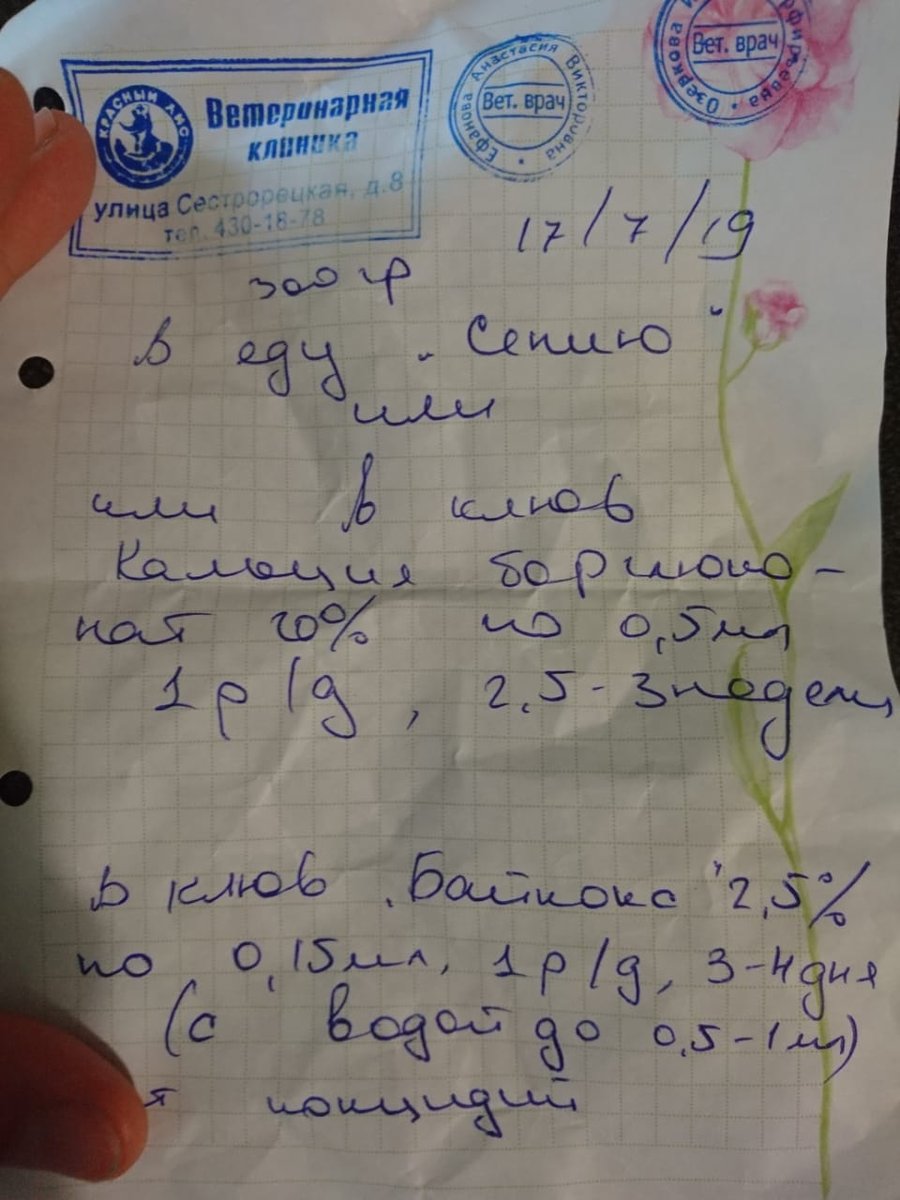 КРАСНЫЙ ЛИС
Ветеринарная
клиника
улица Сестрорецкая, д.8
тел. 430-18-78
Ефанова Анастасия Викторовна
Вет. врач
Озеркова
Вет. врач
17/7/19
300 гр
В еду „Сепию"
или
или в клюв
Кальция борглюко-
нат 20% по 0,5 мл
1 р/д, 2,5-3 недели
В клюв „Байкокс" 2,5%
по 0,15 мл, 1 р/д, 3-4 дня
(с водой до 0,5-1 мл)
кокцидий